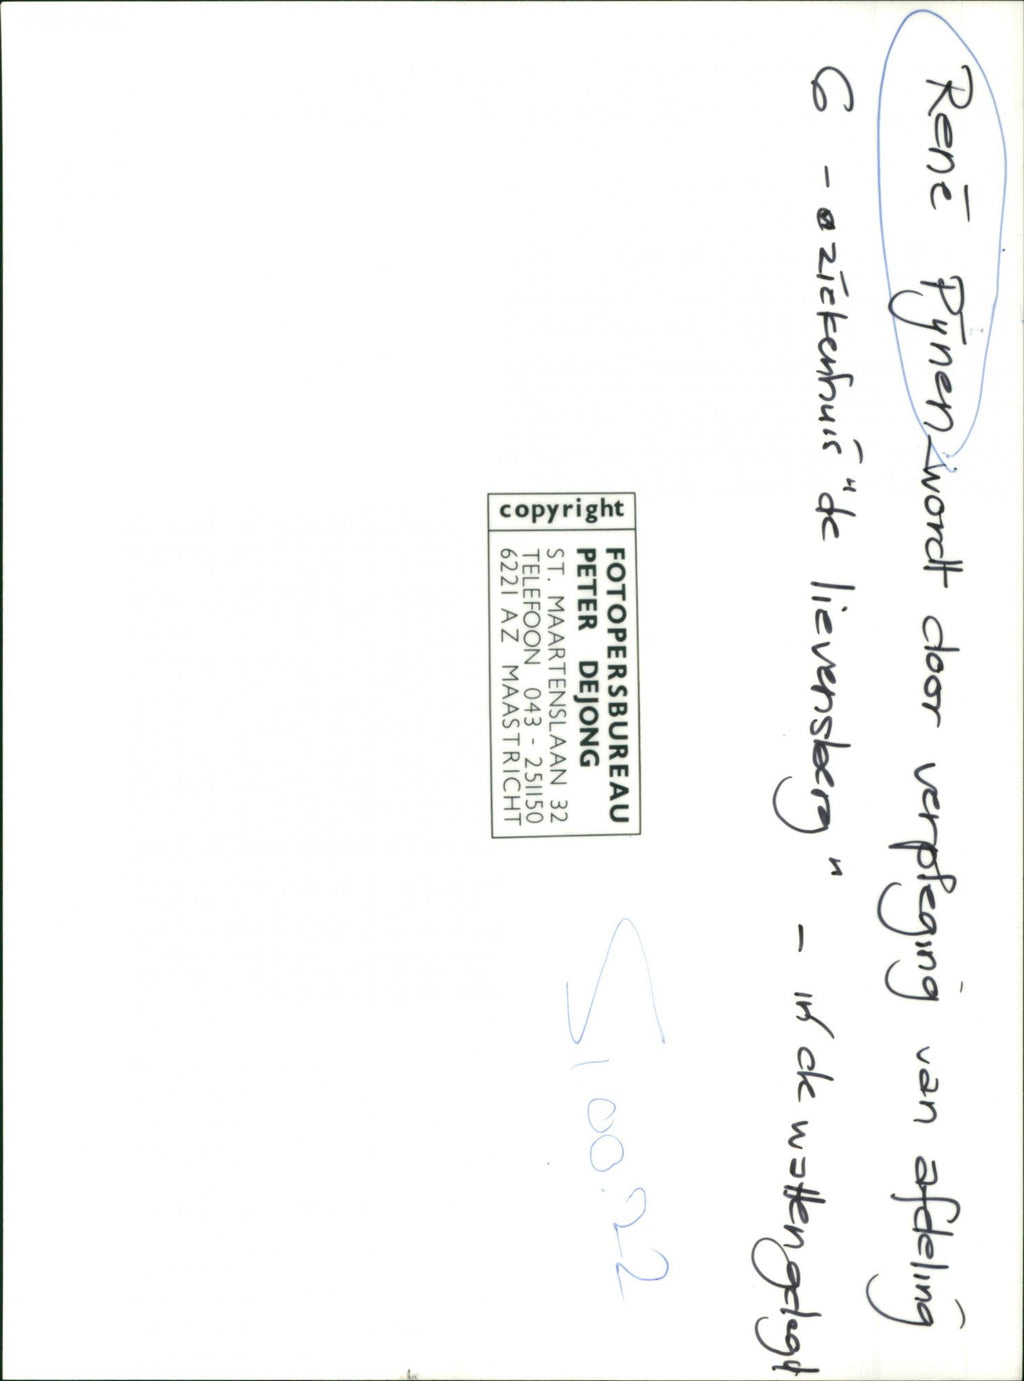 René Pijnen wordt door verpleging van afdeling
6 - ziekenhuis "de lievensberg" - in de watten gelegd
copyright
FOTOPERSBUREAU
PETER DEJONG
ST. MAARTENSLAAN 32
TELEFOON 043 - 251150
6221 AZ MAASTRICHT
100.22